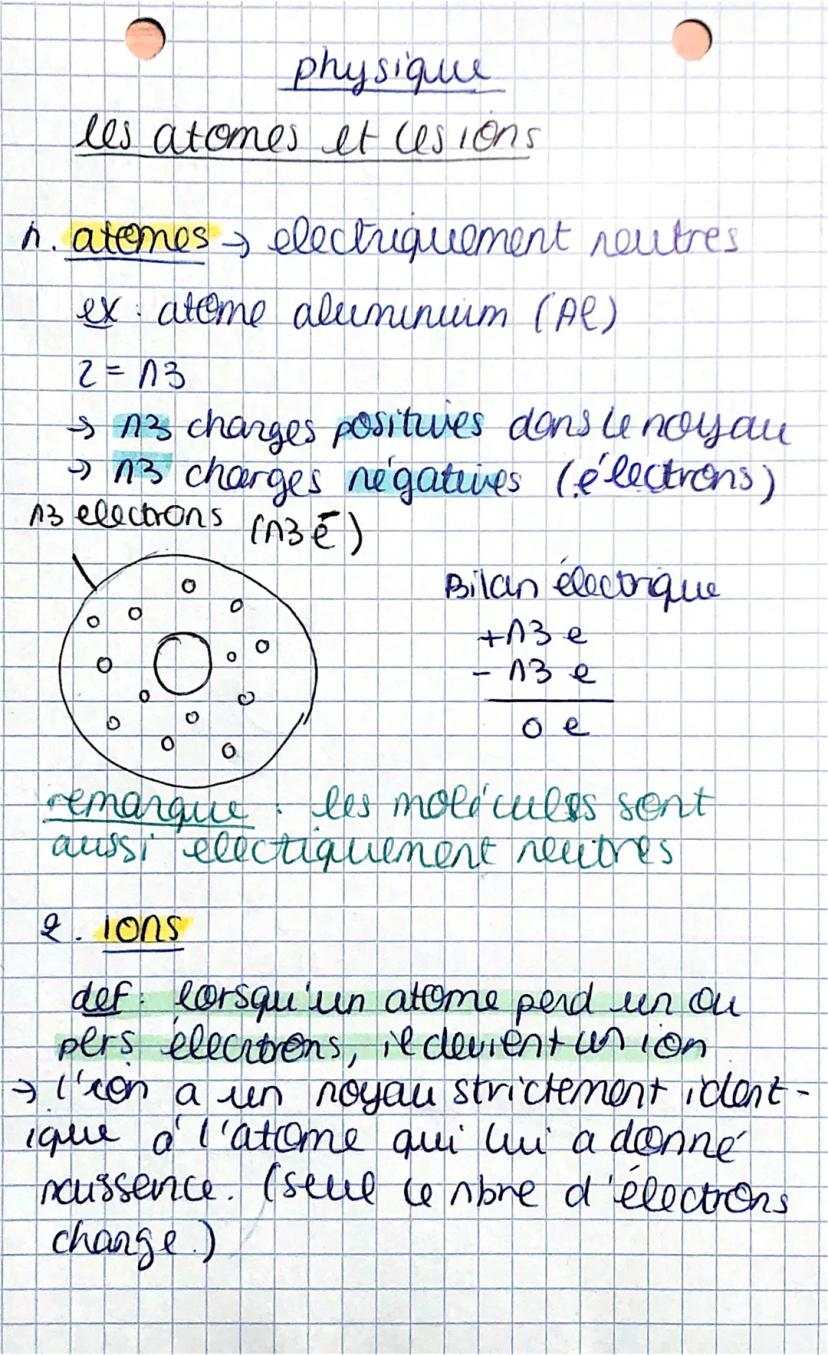 physique
les atomes et les ions
1. atomes → electriquement neutres
ex : atome aluminium (Al)
Z = 13
→ 13 charges positives dans le noyau
→ 13 charges négatives (électrons)
13 electrons (13 e⁻)
Bilan électrique
+13 e
- 13 e
0 e
remarque : les molécules sont
aussi electiquement neutres
2. ions
def : lorsqu'un atome perd un ou
pers électrons, il devient un ion
→ l'ion a un noyau strictement ident-
ique à l'atome qui lui a donné
naissence. (seul le nbre d'électrons
change.)